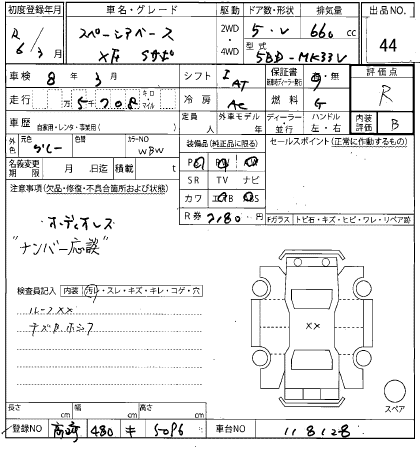 初度登録年月 車名・グレード 駆動 ドア数・形状 排気量 出品NO.
R 6/3月 スペーシアベース XF 2WD ・ 4WD 5・V 660 cc 44
型式 5BD-MK33V
車検 8年 3月 シフト AT 保証書 有・無 評価点
走行 万 5千708 キロ マイル 冷房 AC 燃料 G R
車歴 自家用・レンタ・事業用( ) 定員 人 外車モデル 年 ディーラー・並行 ハンドル 左・右 内装評価 B
外色 元色 グレー 色替 カラーNO WBW 装備品(純正品に限る) セールスポイント(正常に作動するもの)
名義変更期限 月 日迄 積載 t
SR TV ナビ
注意事項(欠品・修復・不具合箇所および状態) カワ エアB ABS
R券 7180 円 Fガラス トビ石・キズ・ヒビ・ワレ・リペア跡
オーディオレス
"ナンバー応談"
検査員記入 内装 汚レ・スレ・キズ・キレ・コゲ・穴
ルーフXX
XX
スペア
長さ cm 幅 cm 高さ cm
登録NO 高崎 480 キ 5096 車台NO 118128